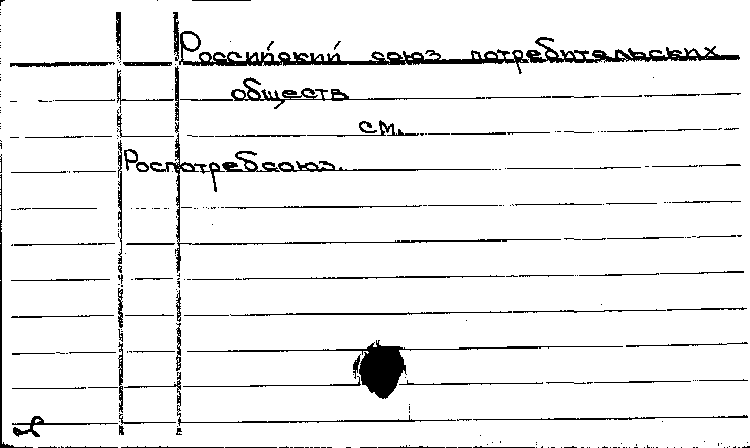 Российский союз потребительских
обществ
см.
Роспотребсоюз.